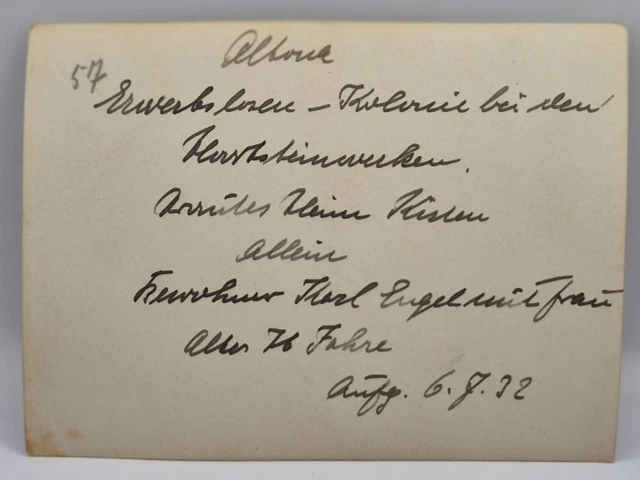 Altona
57
Erwerbslosen – Kolonie bei den
Hartsteinwerken.
Trautes Heim
Allein
Bewohner Karl Engel mit Frau
Alter 76 Jahre
Aufg. 6.7.32